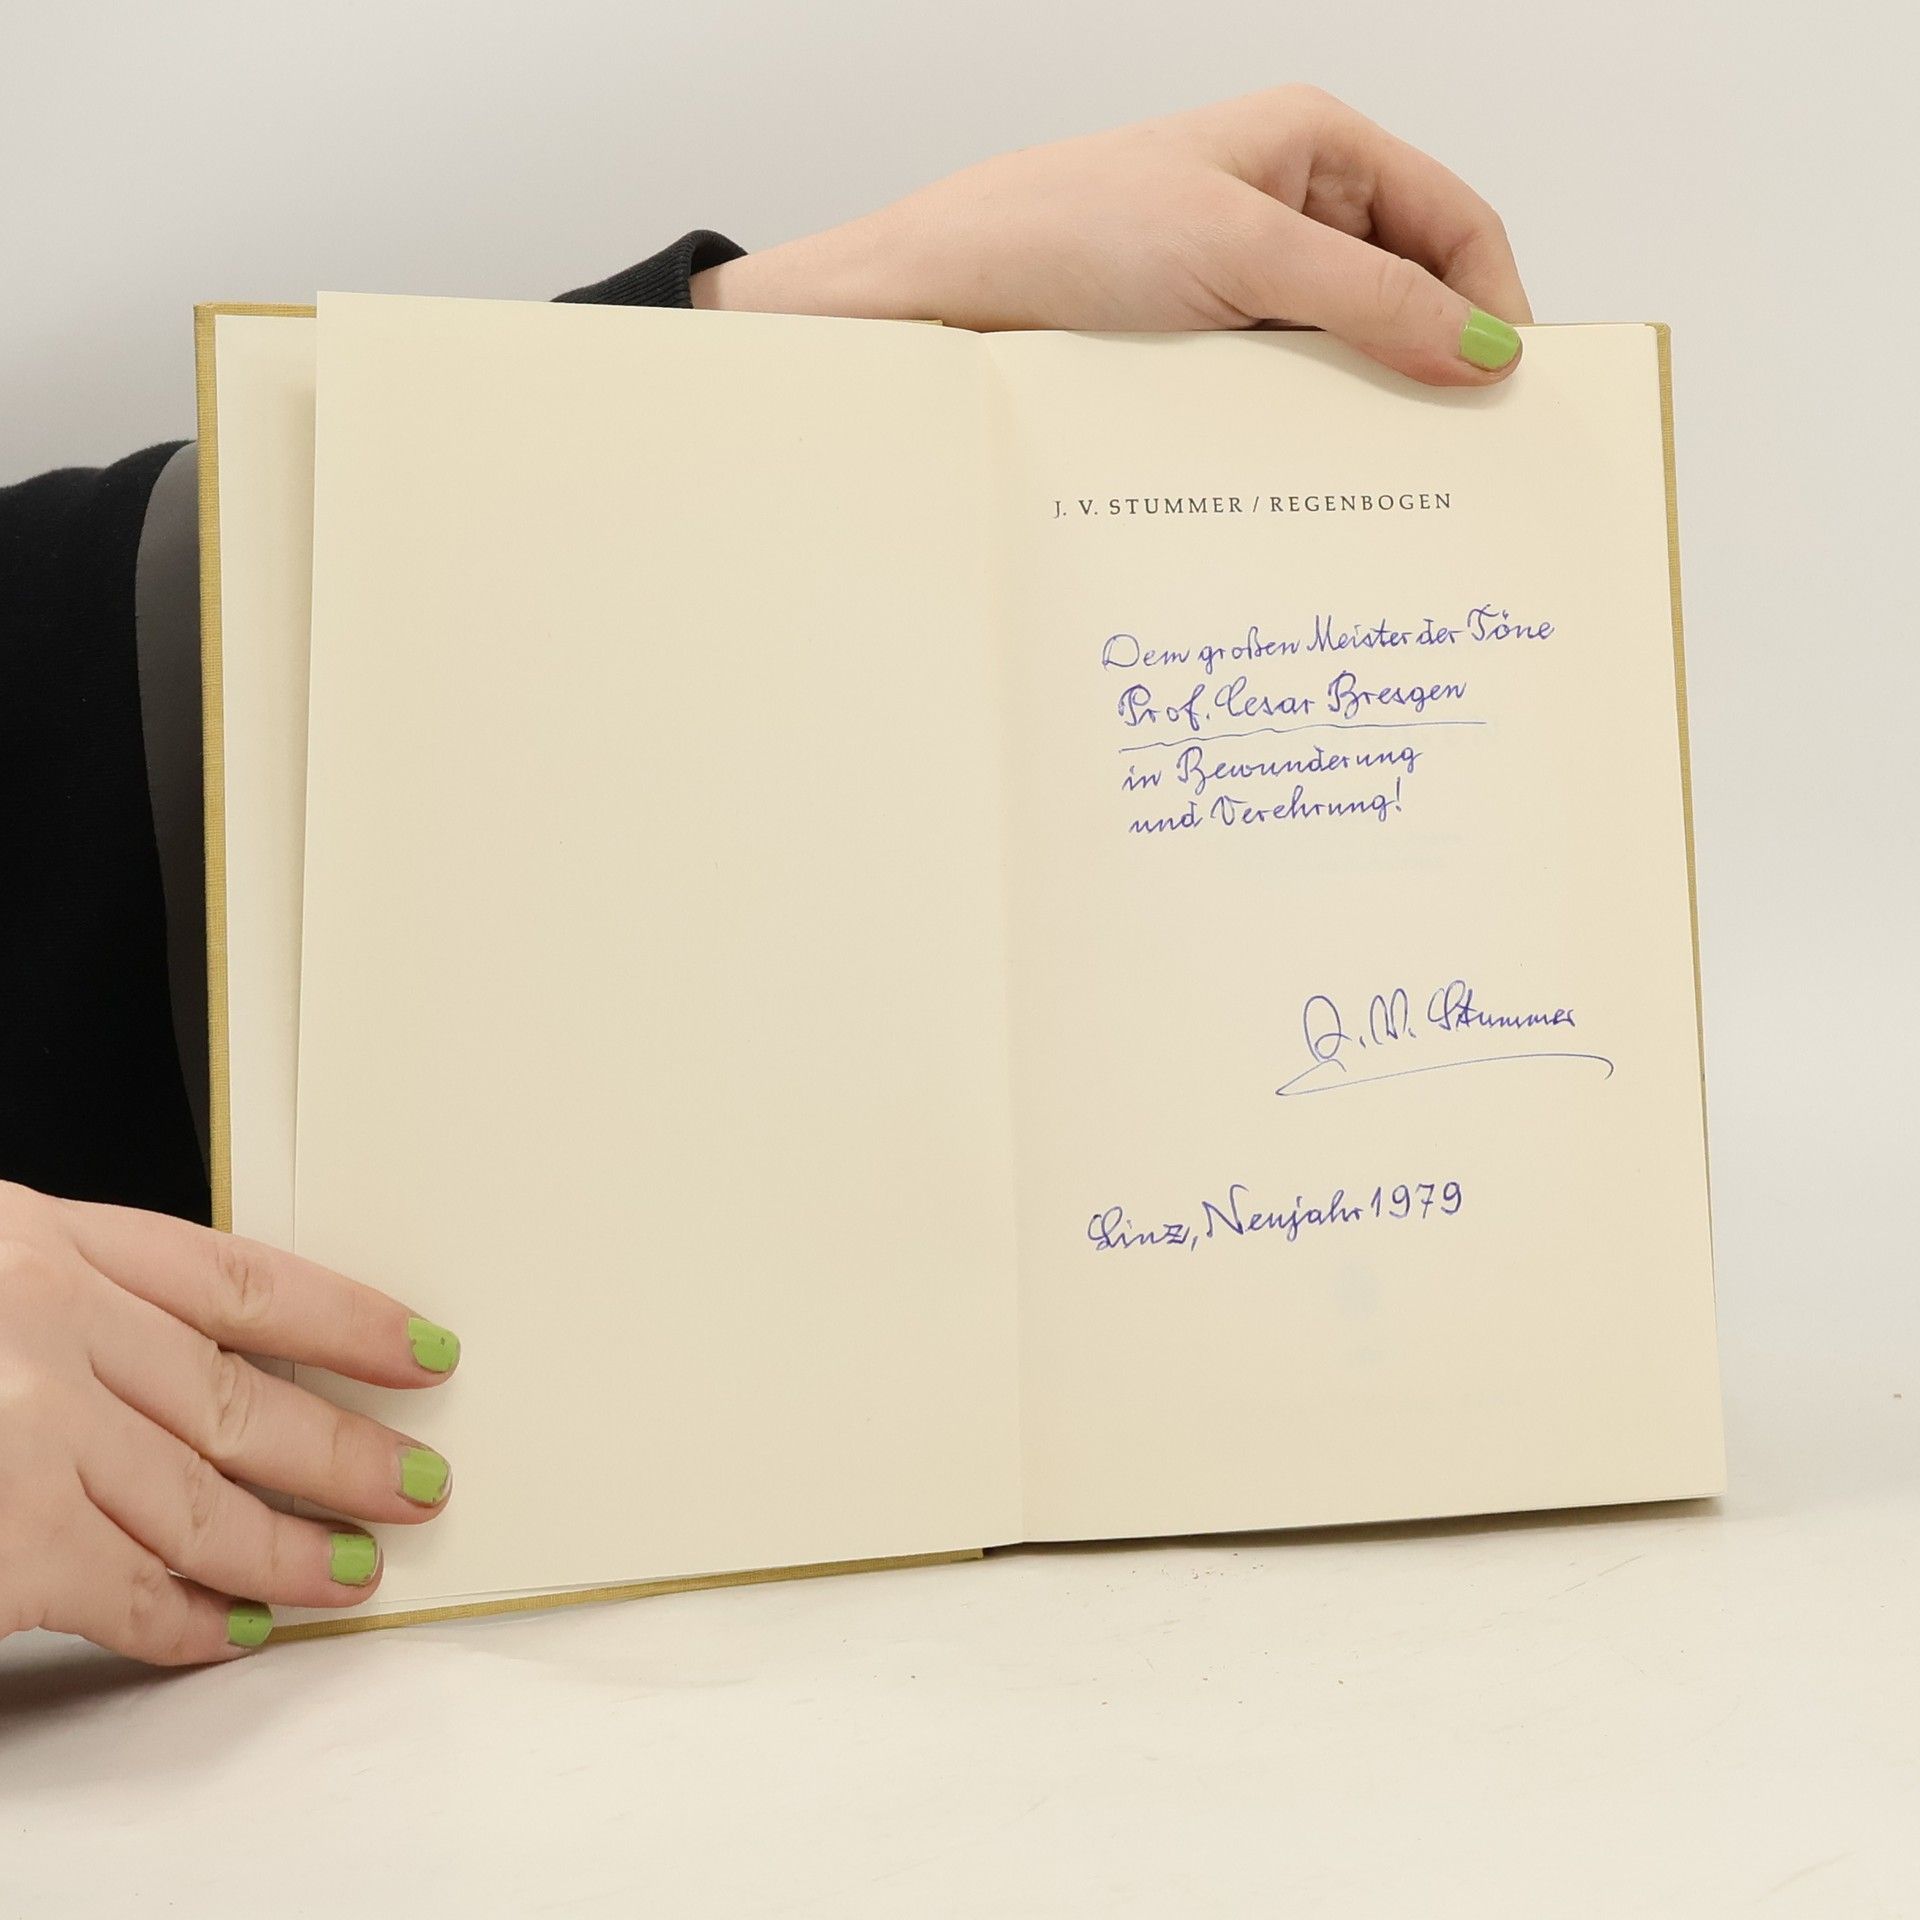 J. V. STUMMER / REGENBOGEN
Dem großen Meister der Töne
Prof. Cesar Bresgen
in Bewunderung
und Verehrung!
J. V. Stummer
Linz, Neujahr 1979